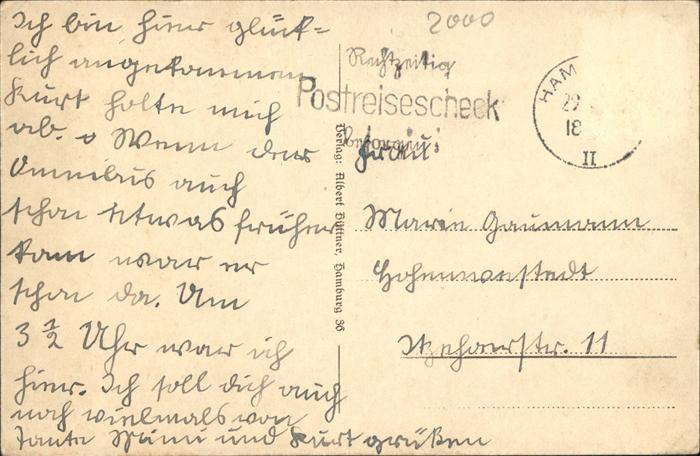 Ich bin hier glück-
lich angekommen
Kurt holte mich
ab. Wenn der
Omnibus auch
schon etwas früher
kam war er
schon da. Um
3 1/2 Uhr war ich
hier. Ich soll dich auch
noch vielmals von
Tante Minni und Kurt grüßen
2000
Rechtzeitig
Postreisescheck
besorgen!
HAM
29
18
II
Verlag: Albert Büttner, Hamburg 36
Frau
Marie Gaumann
Hohenwestedt
Itzehoerstr. 11